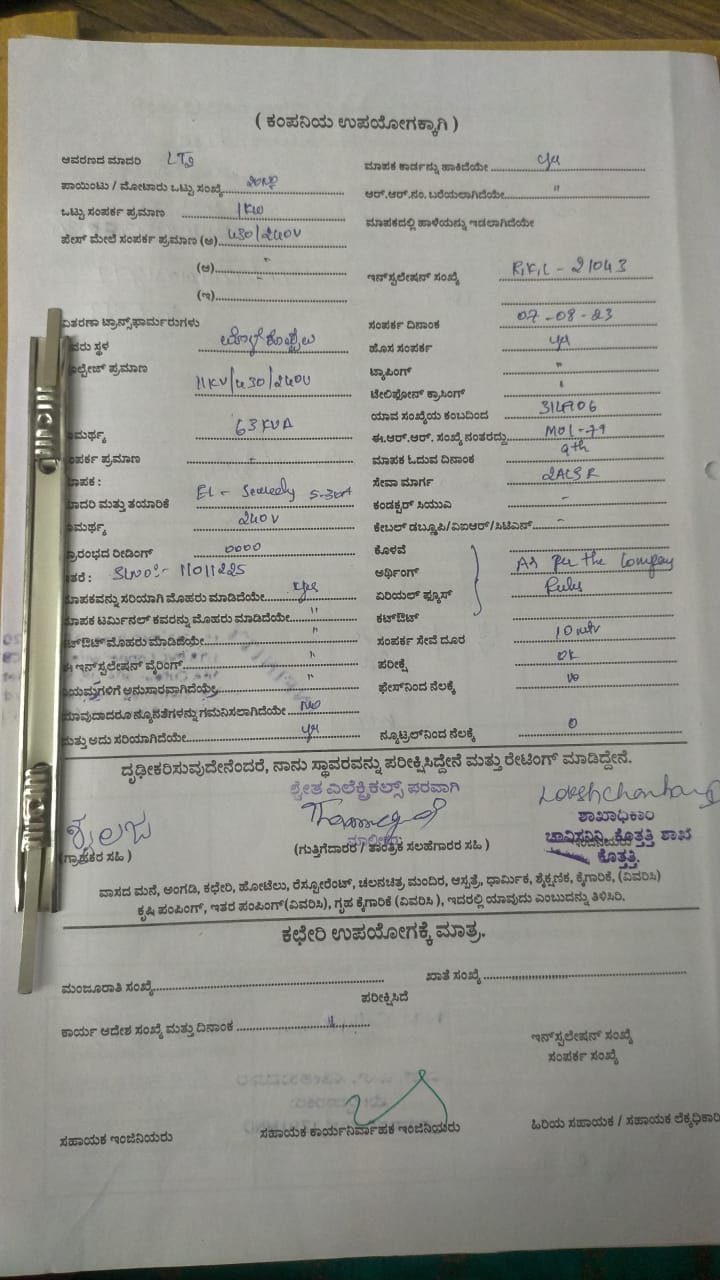 ( ಕಂಪನಿಯ ಉಪಯೋಗಕ್ಕಾಗಿ )
ಆವರಣದ ಮಾದರಿ LT2
ಮಾಪಕ ಕಾರ್ಡನ್ನು ಹಾಕಿದೆಯೇ yes
ಪಾಯಿಂಟು / ಮೋಟಾರು ಒಟ್ಟು ಸಂಖ್ಯೆ
ಆರ್.ಆರ್.ನಂ. ಬರೆಯಲಾಗಿದೆಯೇ "
ಒಟ್ಟು ಸಂಪರ್ಕ ಪ್ರಮಾಣ 1KW
ಮಾಪಕದಲ್ಲಿ ಹಾಳೆಯನ್ನು ಇಡಲಾಗಿದೆಯೇ
ಪೇಸ್ ಮೇಲೆ ಸಂಪರ್ಕ ಪ್ರಮಾಣ (ಅ) 430/240V
(ಆ) "
ಇನ್‌ಸ್ಪಲೇಷನ್ ಸಂಖ್ಯೆ R.K.L - 21043
(ಇ)
ವಿತರಣಾ ಟ್ರಾನ್ಸ್‌ಫಾರ್ಮರುಗಳು
ಸಂಪರ್ಕ ದಿನಾಂಕ 07-08-23
ಸ್ಥಳ
ಹೊಸ ಸಂಪರ್ಕ yes
ಪ್ರಮಾಣ 11KV/430/240V
ಟ್ಯಾಪಿಂಗ್ "
ಟೆಲಿಫೋನ್ ಕ್ರಾಸಿಂಗ್ "
ಯಾವ ಸಂಖ್ಯೆಯ ಕಂಬದಿಂದ
63KVA
ಈ.ಆರ್.ಆರ್. ಸಂಖ್ಯೆ ನಂತರದ್ದು MOL-79
ಪ್ರಮಾಣ -
ಮಾಪಕ ಓದುವ ದಿನಾಂಕ 9th
ಸೇವಾ ಮಾರ್ಗ 2ACSR
ಮಾದರಿ ಮತ್ತು ತಯಾರಿಕೆ EL - 5-30A
ಕಂಡಕ್ಟರ್ ಸಿಯುವಿ -
240V
ಕೇಬಲ್ ಡಬ್ಲೂಪಿ/ಐಆರ್/ಸಿಟಿಎಸ್ -
ಪ್ರಾರಂಭದ ರೀಡಿಂಗ್ 0000
ಕೊಳವೆ
ಇತರೆ : SLNO:- 11011225
ಅರ್ಥಿಂಗ್ As per the Company
ಮಾಪಕವನ್ನು ಸರಿಯಾಗಿ ಮೊಹರು ಮಾಡಿದೆಯೇ yes
ಏರಿಯಲ್ ಫ್ಯೂಸ್ Rules
ಮಾಪಕ ಟರ್ಮಿನಲ್ ಕವರನ್ನು ಮೊಹರು ಮಾಡಿದೆಯೇ "
ಕಟ್‌ಔಟ್
ಕಟ್‌ಔಟ್ ಮೊಹರು ಮಾಡಿದೆಯೇ "
ಸಂಪರ್ಕ ಸೇವೆ ದೂರ 10 mtr
ಈ ಇನ್‌ಸ್ಪಲೇಷನ್ ವೈರಿಂಗ್ "
ಪರೀಕ್ಷೆ OK
ನಿಯಮಗಳಿಗೆ ಅನುಸಾರವಾಗಿದೆಯೇ "
ಫೇಸ್‌ನಿಂದ ನೆಲಕ್ಕೆ
ಯಾವುದಾದರೂ ನ್ಯೂನತೆಗಳನ್ನು ಗಮನಿಸಲಾಗಿದೆಯೇ No
ಮತ್ತು ಅದು ಸರಿಯಾಗಿದೆಯೇ yes
ನ್ಯೂಟ್ರಲ್‌ನಿಂದ ನೆಲಕ್ಕೆ 0
ದೃಢೀಕರಿಸುವುದೇನೆಂದರೆ, ನಾನು ಸ್ಥಾವರವನ್ನು ಪರೀಕ್ಷಿಸಿದ್ದೇನೆ ಮತ್ತು ರೇಟಿಂಗ್ ಮಾಡಿದ್ದೇನೆ.
ಶ್ವೇತ ಎಲೆಕ್ಟ್ರಿಕಲ್ಸ್ ಪರವಾಗಿ
ಶೈಲಜ
ಶಾಖಾಧಿಕಾರಿ
(ಗ್ರಾಹಕರ ಸಹಿ )
(ಗುತ್ತಿಗೆದಾರರ / ತಾಂತ್ರಿಕ ಸಲಹೆಗಾರರ ಸಹಿ )
ಚಾವಿಸನಿನಿ, ಕೊತ್ತತ್ತಿ ಶಾಖೆ
ಕೊತ್ತತ್ತಿ.
ವಾಸದ ಮನೆ, ಅಂಗಡಿ, ಕಛೇರಿ, ಹೋಟೆಲು, ರೆಸ್ಟೋರೆಂಟ್, ಚಲನಚಿತ್ರ ಮಂದಿರ, ಆಸ್ಪತ್ರೆ, ಧಾರ್ಮಿಕ, ಶೈಕ್ಷಣಿಕ, ಕೈಗಾರಿಕೆ, (ವಿವರಿಸಿ)
ಕೃಷಿ ಪಂಪಿಂಗ್, ಇತರ ಪಂಪಿಂಗ್(ವಿವರಿಸಿ), ಗೃಹ ಕೈಗಾರಿಕೆ (ವಿವರಿಸಿ ), ಇದರಲ್ಲಿ ಯಾವುದು ಎಂಬುದನ್ನು ತಿಳಿಸಿರಿ.
ಕಛೇರಿ ಉಪಯೋಗಕ್ಕೆ ಮಾತ್ರ.
ಮಂಜೂರಾತಿ ಸಂಖ್ಯೆ
ಖಾತೆ ಸಂಖ್ಯೆ
ಪರೀಕ್ಷಿಸಿದೆ
ಕಾರ್ಯ ಆದೇಶ ಸಂಖ್ಯೆ ಮತ್ತು ದಿನಾಂಕ
ಇನ್‌ಸ್ಪಲೇಷನ್ ಸಂಖ್ಯೆ
ಸಂಪರ್ಕ ಸಂಖ್ಯೆ
ಸಹಾಯಕ ಇಂಜಿನಿಯರು
ಸಹಾಯಕ ಕಾರ್ಯನಿರ್ವಾಹಕ ಇಂಜಿನಿಯರು
ಹಿರಿಯ ಸಹಾಯಕ / ಸಹಾಯಕ ಲೆಕ್ಕಾಧಿಕಾರಿ